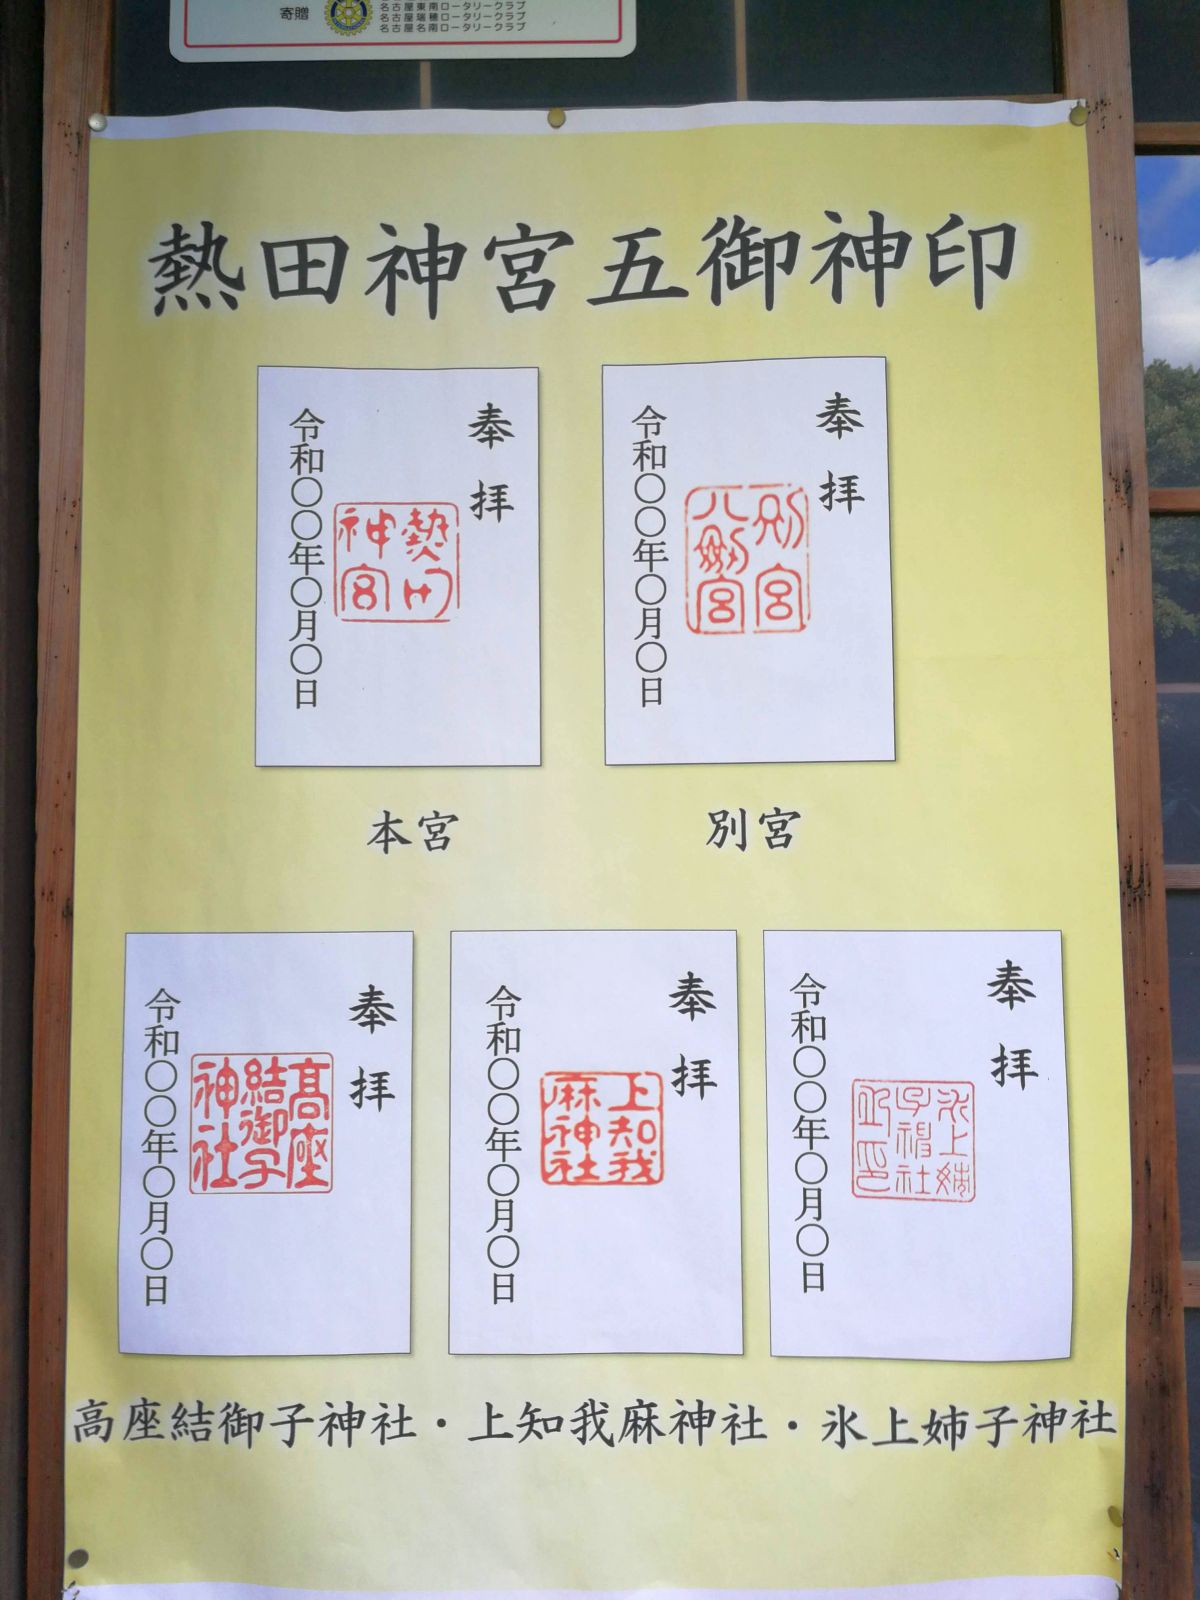 寄贈
名古屋東南ロータリークラブ
名古屋瑞穂ロータリークラブ
名古屋名南ロータリークラブ
熱田神宮五御神印
奉拝
熱田
神宮
令和〇〇年〇月〇日
奉拝
別宮
八剣宮
令和〇〇年〇月〇日
本宮
別宮
奉拝
高座
結御子
神社
令和〇〇年〇月〇日
奉拝
上知我
麻神社
令和〇〇年〇月〇日
奉拝
氷上姉
子神社
令和〇〇年〇月〇日
高座結御子神社・上知我麻神社・氷上姉子神社